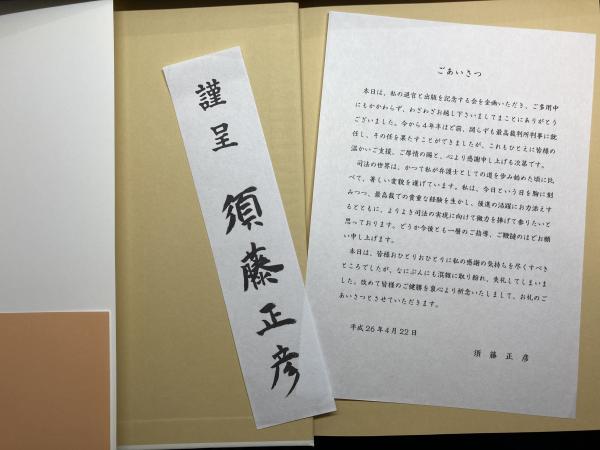 謹呈 須藤正彦
ごあいさつ
本日は、私の退官と出版を記念する会を企画いただき、ご多用中
にもかかわらず、わざわざお越し下さいましてまことにありがとう
ございました。今から4年半ほど前、図らずも最高裁判所判事に就
任し、その任を果たすことができましたが、これもひとえに皆様の
温かいご支援、ご厚情の賜と、心より感謝申し上げる次第です。
司法の世界は、かつて私が弁護士としての道を歩み始めた頃に比
べて、著しい変貌を遂げています。私は、今日という日を胸に刻
みつつ、最高裁での貴重な経験を生かし、後進の活躍にお力添えす
るとともに、よりよき司法の実現に向けて微力を捧げて参りたいと
思っております。どうか今後とも一層のご指導、ご鞭撻のほどお願
い申し上げます。
本日は、皆様おひとりおひとりに私の感謝の気持ちを尽くすべき
ところでしたが、なにぶんにも混雑に取り紛れ、失礼してしまいま
した。改めて皆様のご健勝を衷心より祈念いたしまして、お礼のご
あいさつとさせていただきます。
平成26年4月22日
須藤正彦